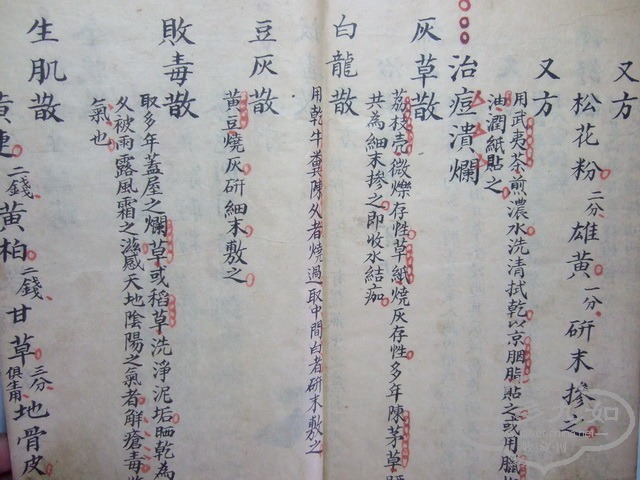 又方
松花粉二分雄黃一分研末摻之
又方
用武夷茶煎濃水洗清拭乾以京胭脂貼之或用臘
油潤紙貼之
治痘潰爛
灰草散
荔枝壳微爍存性草紙燒灰存性多年陳茅草
共為細末摻之即收水結痂
白龍散
用乾牛糞陳久者燒過取中間白者研末敷之
豆灰散
黃豆燒灰研細末敷之
敗毒散
取多年蓋屋之爛草或稻草洗淨泥垢晒乾為
久被雨露風霜之滋感天地陰陽之氣者解瘡毒
氣也
生肌散
黃連二錢黃柏二錢甘草三分俱生用地骨皮